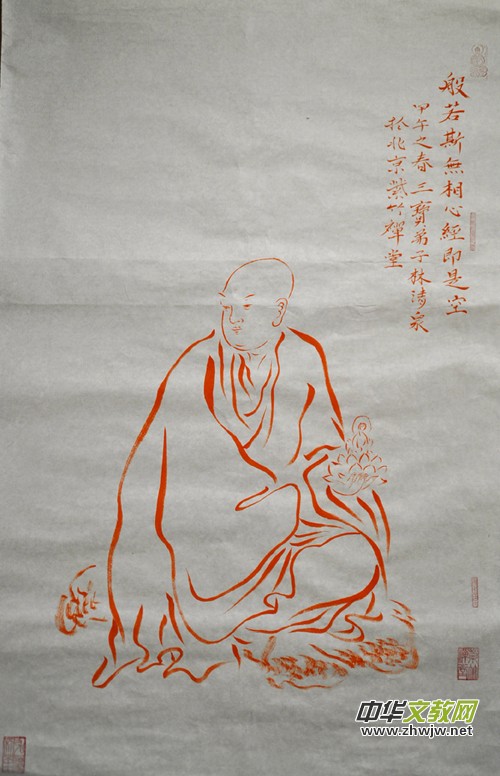 般若斯無相心經即是空
甲午之春三寶弟子林清泉
於北京紫竹禪堂
中华文教网
www.zhwjw.net